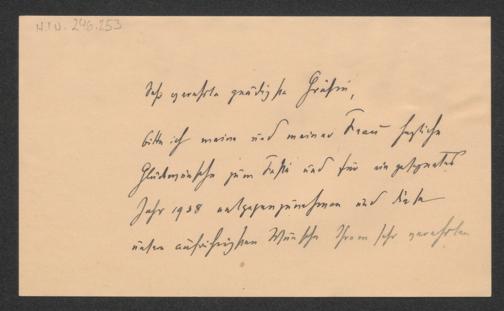 H.I.N. 246.253
Sehr verehrte gnädigste Gräfin,
bitte ich meine und meiner Frau herzliche
Glückwünsche zum Feste und für ein gesegnetes
Jahr 1938 entgegenzunehmen und diese
unsere aufrichtigsten Wünsche Ihrem sehr verehrten